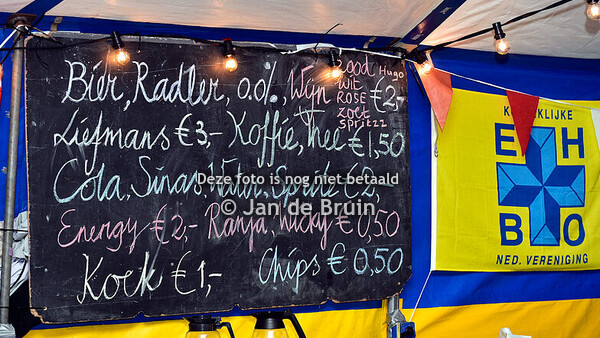 Bier, Radler, 0.0%, Wijn €2,-
rood Hugo
wit
Rosé
zoet
spritzz
Liefmans €3,- Koffie, Thee €1,50
Cola, Sinas, Water, Sprite €2,-
Energy €2,- Ranja, Wicky €0,50
Koek €1,- Chips €0,50
Deze foto is nog niet betaald
© Jan de Bruin
KONINKLIJKE
EH
BO
NED. VERENIGING